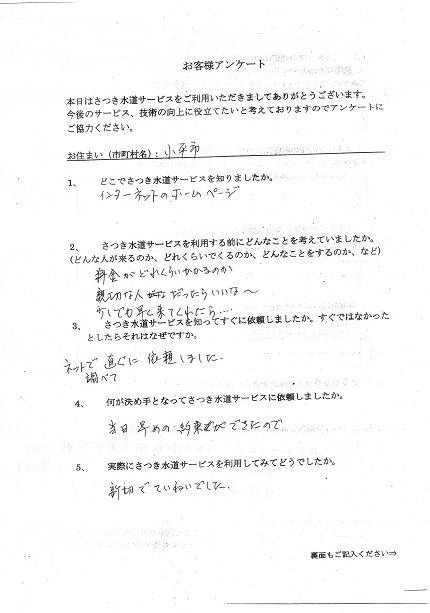 お客様アンケート
本日はさつき水道サービスをご利用いただきましてありがとうございます。
今後のサービス、技術の向上に役立てたいと考えておりますのでアンケートに
ご協力ください。
お住まい(市町村名): 小平市
1、 どこでさつき水道サービスを知りましたか。
インターネットのホームページ
2、 さつき水道サービスを利用する前にどんなことを考えていましたか。
(どんな人が来るのか、どれくらいでくるのか、どんなことをするのか、など)
料金がどれくらいかかるのか
親切な人だったらいいな〜
少しでも早く来てくれたら…
3、 さつき水道サービスを知ってすぐに依頼しましたか。すぐではなかった
としたらそれはなぜですか。
ネットで調べて直ぐに依頼しました。
4、 何が決め手となってさつき水道サービスに依頼しましたか。
当日早めの約束ができたので
5、 実際にさつき水道サービスを利用してみてどうでしたか。
親切でていねいでした。
裏面もご記入ください⇒